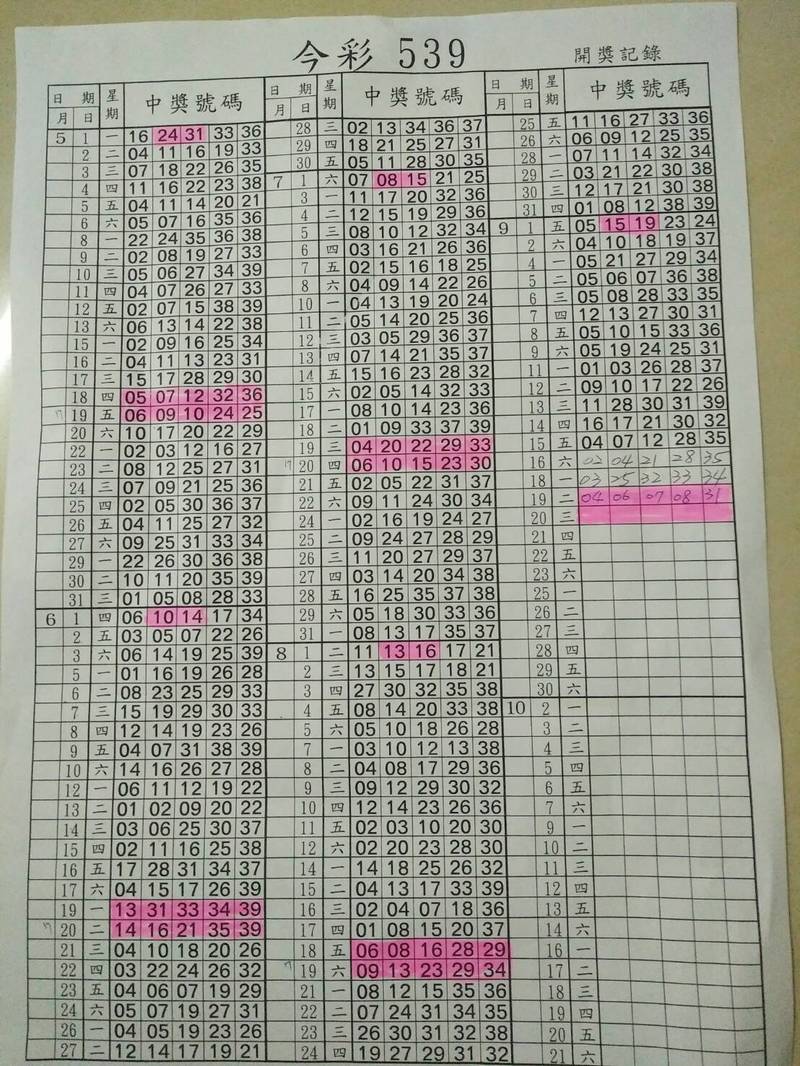 今彩 539
開獎記錄
日 期 星期 中獎號碼
月 日
5 1 一 16 24 31 33 36
2 二 04 11 16 19 33
3 三 07 18 22 26 35
4 四 11 16 22 23 38
5 五 04 11 14 20 21
6 六 05 07 16 35 36
8 一 22 24 35 36 38
9 二 02 08 19 27 33
10 三 05 06 27 34 39
11 四 04 07 26 27 33
12 五 02 07 15 38 39
13 六 06 13 14 22 38
15 一 02 09 16 25 34
16 二 04 11 13 23 31
17 三 15 17 28 29 30
18 四 05 07 12 32 36
19 五 06 09 10 24 25
20 六 10 17 20 22 29
22 一 02 03 12 16 27
23 二 08 12 25 27 31
24 三 07 09 21 25 36
25 四 02 05 30 36 37
26 五 04 11 25 27 32
27 六 09 25 31 33 34
29 一 22 26 30 36 38
30 二 10 11 20 35 39
31 三 01 05 08 28 33
6 1 四 06 10 14 17 34
2 五 03 05 07 22 26
3 六 06 14 19 25 39
5 一 01 16 19 26 28
6 二 08 23 25 29 33
7 三 15 19 29 30 33
8 四 12 14 19 23 26
9 五 04 07 31 38 39
10 六 14 16 26 27 28
12 一 06 11 12 19 22
13 二 01 02 09 20 22
14 三 03 06 25 30 37
15 四 02 11 16 25 38
16 五 17 28 31 34 37
17 六 04 15 17 26 39
19 一 13 31 33 34 39
20 二 14 16 21 35 39
21 三 04 10 18 20 26
22 四 03 22 24 26 32
23 五 04 06 07 19 29
24 六 05 07 19 27 31
26 一 04 05 19 23 26
27 二 12 14 17 19 21
日 期 星期 中獎號碼
月 日
28 三 02 13 34 36 37
29 四 18 21 25 27 31
30 五 05 11 28 30 35
7 1 六 07 08 15 21 25
3 一 11 17 20 32 36
4 二 12 15 19 29 36
5 三 08 10 12 32 34
6 四 03 16 21 26 36
7 五 02 15 16 18 25
8 六 04 09 14 22 26
10 一 04 13 19 20 24
11 二 05 14 20 25 26
12 三 03 05 29 36 37
13 四 07 14 21 35 37
14 五 15 16 23 28 32
15 六 02 05 14 32 33
17 一 08 10 14 23 36
18 二 01 09 33 37 39
19 三 04 20 22 29 33
20 四 06 10 15 23 30
21 五 02 05 22 31 37
22 六 09 11 24 30 34
24 一 02 16 19 24 27
25 二 09 24 27 28 29
26 三 11 20 27 29 37
27 四 03 14 20 34 38
28 五 16 25 35 37 38
29 六 05 18 30 33 36
31 一 08 13 17 35 37
8 1 二 11 13 16 17 21
2 三 13 15 17 18 21
3 四 27 30 32 35 38
4 五 08 14 20 33 38
5 六 05 10 18 26 28
7 一 03 10 12 13 38
8 二 04 08 17 29 36
9 三 09 12 29 30 32
10 四 12 14 23 26 36
11 五 02 03 10 20 30
12 六 02 20 23 28 30
14 一 14 18 25 26 32
15 二 04 13 17 33 39
16 三 02 04 07 18 36
17 四 01 08 15 20 37
18 五 06 08 16 28 29
19 六 09 13 23 29 34
21 一 08 12 15 35 36
22 二 07 24 31 34 35
23 三 26 30 31 32 38
24 四 19 27 29 31 32
日 期 星期 中獎號碼
月 日
25 五 11 16 27 33 36
26 六 06 09 12 25 35
28 一 07 11 14 32 34
29 二 03 21 22 30 38
30 三 12 17 21 30 38
31 四 01 08 12 38 39
9 1 五 05 15 19 23 24
2 六 04 10 18 19 37
4 一 05 21 27 29 34
5 二 05 06 07 36 38
6 三 05 08 28 33 35
7 四 12 13 27 30 31
8 五 05 10 15 33 36
9 六 05 19 24 25 31
11 一 01 03 26 28 37
12 二 09 10 17 22 26
13 三 11 28 30 31 39
14 四 16 17 21 30 32
15 五 04 07 12 28 35
16 六 02 04 21 28 35
18 一 03 25 32 33 34
19 二 04 06 07 08 31
20 三
21 四
22 五
23 六
25 一
26 二
27 三
28 四
29 五
30 六
10 2 一
3 二
4 三
5 四
6 五
7 六
9 一
10 二
11 三
12 四
13 五
14 六
16 一
17 二
18 三
19 四
20 五
21 六